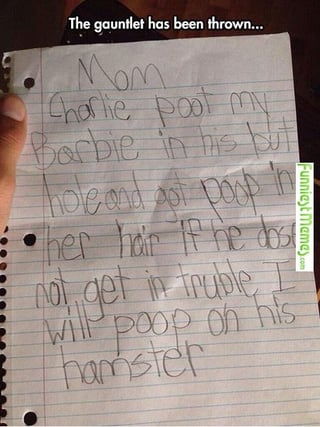 The gauntlet has been thrown...
Mom
Charlie poot my
Barbie in his but
hole and got poop in
her hair if he dose
not get in truble I
will poop on his
hamster
FunniestMemes.com